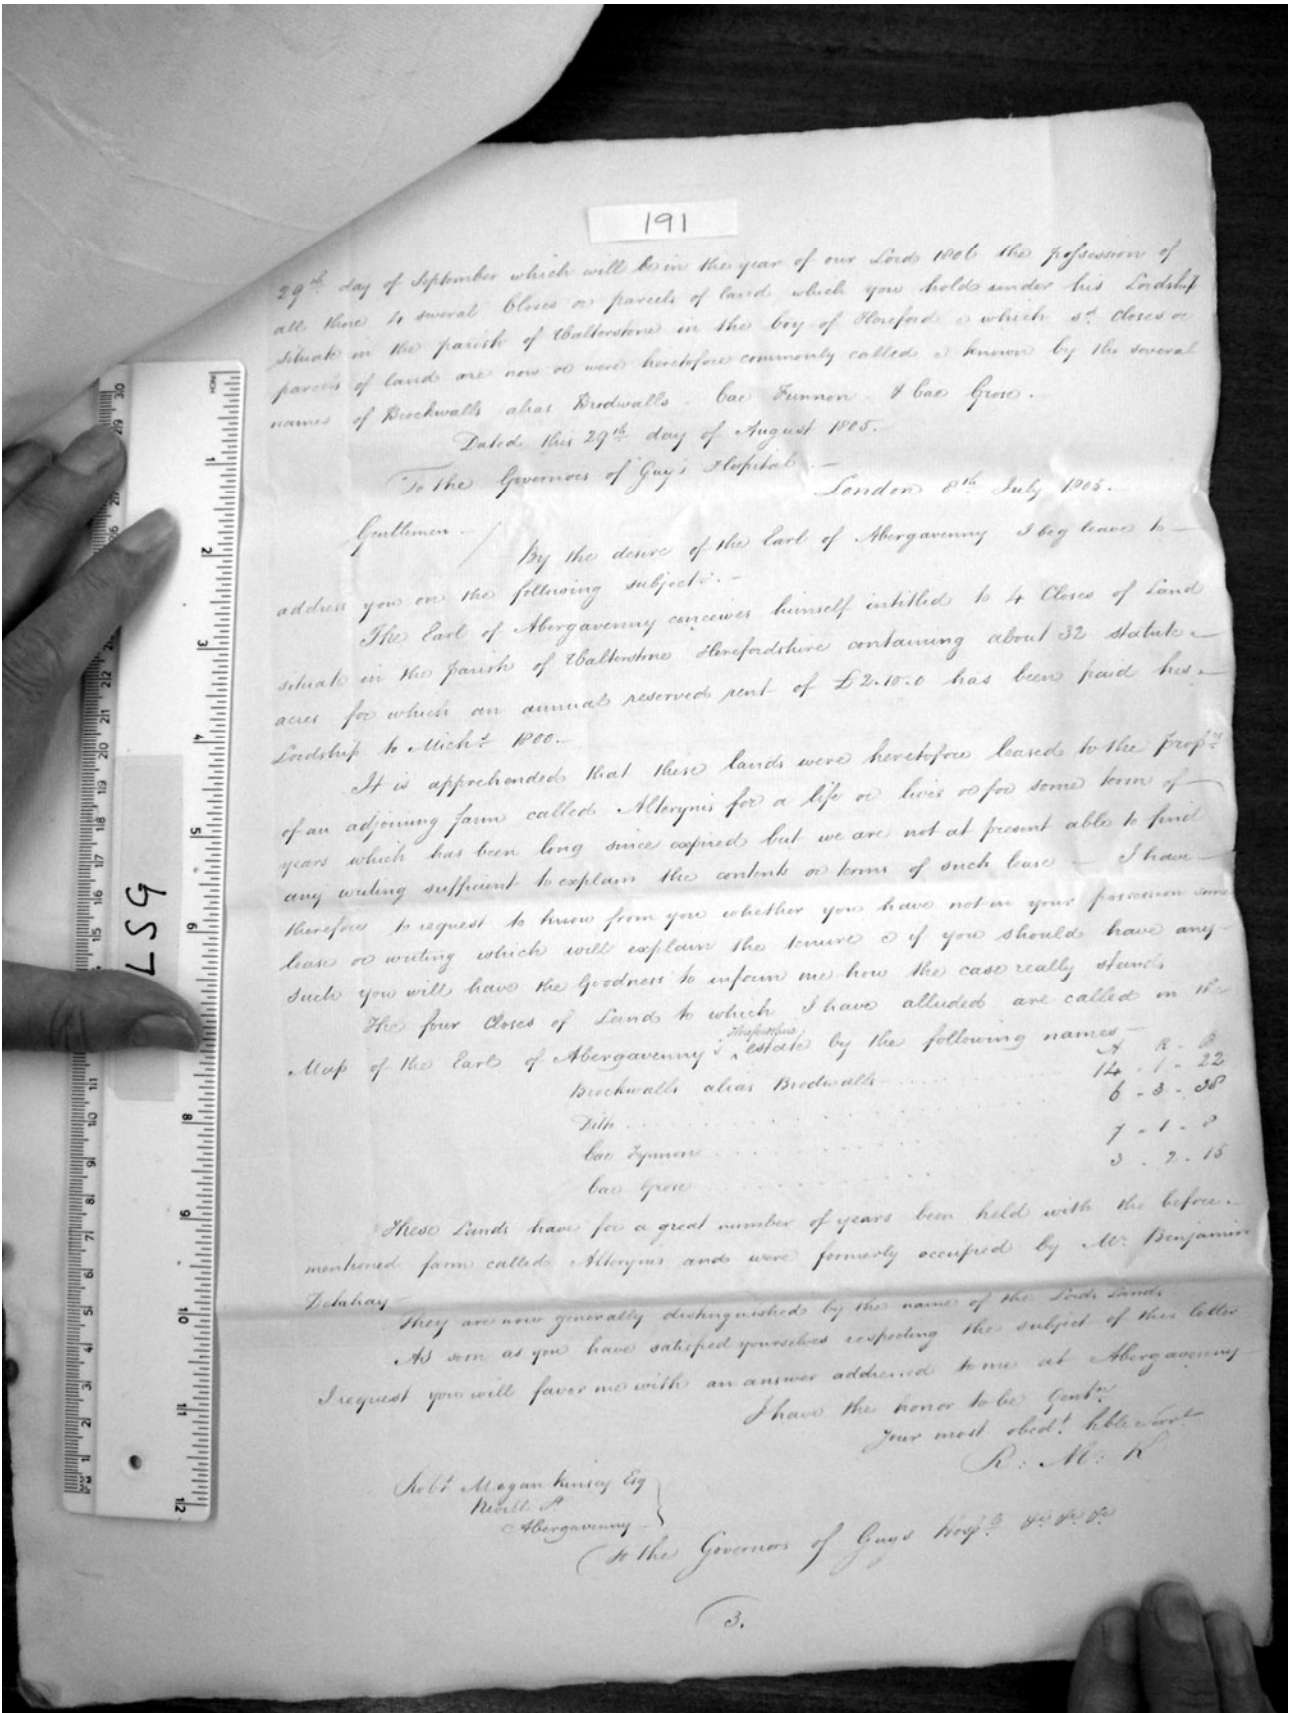 191
29th day of September which will be in the year of our Lord 1806 the possession of
all those 4 several Closes or parcels of land which you hold under his Lordship
situate in the parish of Walterstone in the Coy of Hereford & which sd. Closes or
parcels of land are now or were heretofore commonly called & known by the several
names of Brockwalls alias Brodwalls - Cae Funnon - & Cae Grose.
Dated this 29th day of August 1805.-
To the Governors of Guy's Hospital.-
London 8th July 1805.-
Gentlemen - /
By the desire of the Earl of Abergavenny I beg leave to -
address you on the following subject:-
The Earl of Abergavenny conceives himself intitled to 4 Closes of Land
situate in the parish of Walterstone Herefordshire containing about 32 statute -
acres for which an annual reserved rent of £2.10.0 has been paid his -
Lordship to Michs. 1800.-
It is apprehended that these lands were heretofore leased to the Propr.
of an adjoining farm called Alterynis for a life or lives or for some term of -
years which has been long since expired but we are not at present able to find
any writing sufficient to explain the contents or terms of such lease - I have -
therefore to request to know from you whether you have not in your possession some
lease or writing which will explain the tenure & if you should have any -
such you will have the Goodness to inform me how the case really stands
The four Closes of Land to which I have alluded are called in the
Map of the Earl of Abergavenny's Herefordshire estate by the following names -
A R P
Brockwalls alias Brodwalls 14 - 1 - 22
Ditto 6 - 3 - 38
Cae Fynnon 7 - 1 - 8
Cae Grose 3 - 2 - 15
These Lands have for a great number of years been held with the before -
mentioned farm called Alterynis and were formerly occupied by Mr. Benjamin
Delahay -
They are now generally distinguished by the name of the Lords Lands
As soon as you have satisfied yourselves respecting the subject of this letter
I request you will favor me with an answer addressed to me at Abergavenny -
I have the honor to be Gentn.
Your most obedt. hble Servt
R: M: K
Robt Morgan Kinsey Esq
Nevill St.
Abergavenny -
To the Governors of Guys Hospl. &c &c &c
3.
30 29 21 20 19 18 17 16 15 11 10 9 8 7 6 5 4 3 2 1
INCH 1 2 3 4 5 6 8 9 10 11 12
657